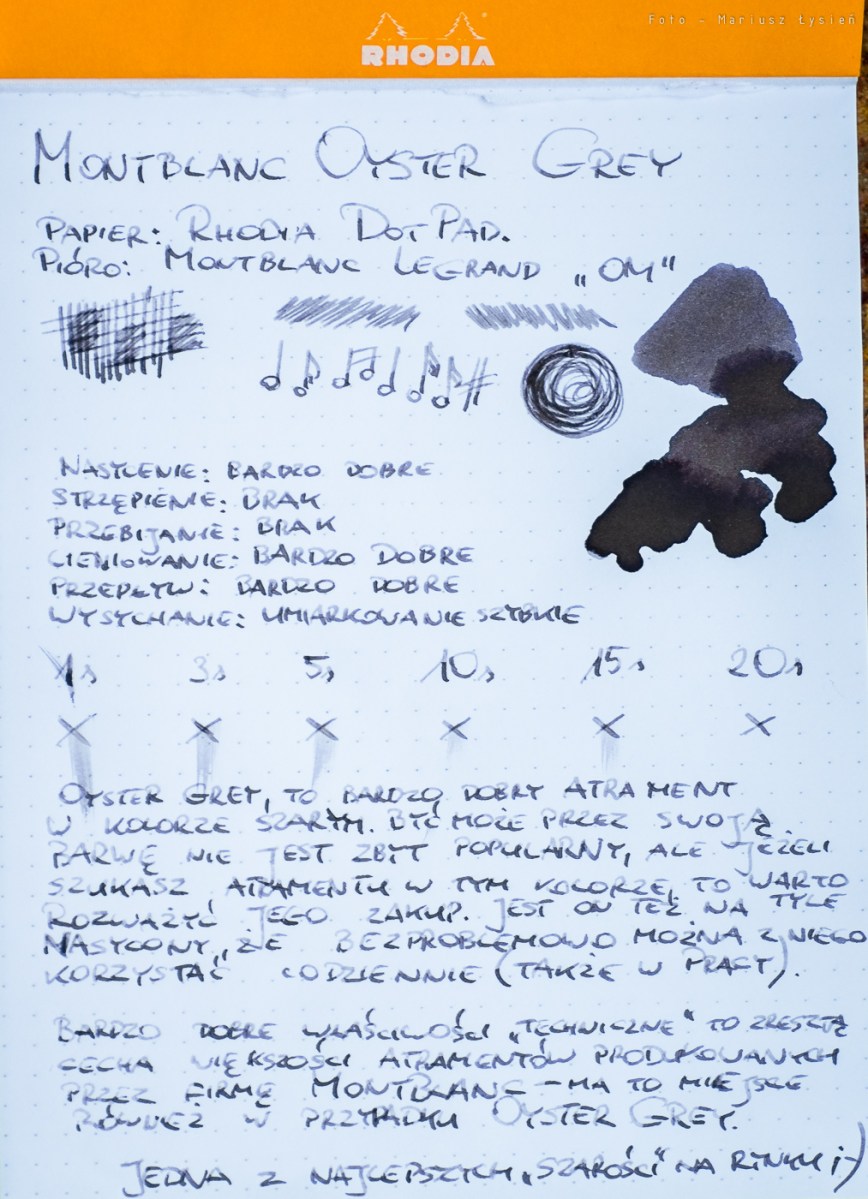 Foto - Mariusz Łysień
RHODIA
MONTBLANC OYSTER GREY
PAPIER: RHODIA DOT PAD.
PIÓRO: MONTBLANC LEGRAND „OM"
NASYCENIE: BARDZO DOBRE
STRZĘPIENIE: BRAK
PRZEBIJANIE: BRAK
CIENIOWANIE: BARDZO DOBRE
PRZEPŁYW: BARDZO DOBRE
WYSYCHANIE: UMIARKOWANIE SZYBKIE
1s 3s 5s 10s 15s 20s
x x x x x x
OYSTER GREY, TO BARDZO DOBRY ATRAMENT
W KOLORZE SZARYM. BYĆ MOŻE PRZEZ SWOJĄ
BARWĘ NIE JEST ZBYT POPULARNY, ALE JEŻELI
SZUKASZ ATRAMENTU W TYM KOLORZE, TO WARTO
ROZWAŻYĆ JEGO ZAKUP. JEST ON TEŻ NA TYLE
NASYCONY, ŻE BEZPROBLEMOWO MOŻNA Z NIEGO
KORZYSTAĆ CODZIENNIE (TAKŻE W PRACY).
BARDZO DOBRE WŁAŚCIWOŚCI „TECHNICZNE" TO ZRESZTĄ
CECHA WIĘKSZOŚCI ATRAMENTÓW PRODUKOWANYCH
PRZEZ FIRMĘ MONTBLANC - MA TO MIEJSCE
RÓWNIEŻ W PRZYPADKU OYSTER GREY.
JEDNA Z NAJLEPSZYCH „SZAROŚCI" NA RYNKU ;-)